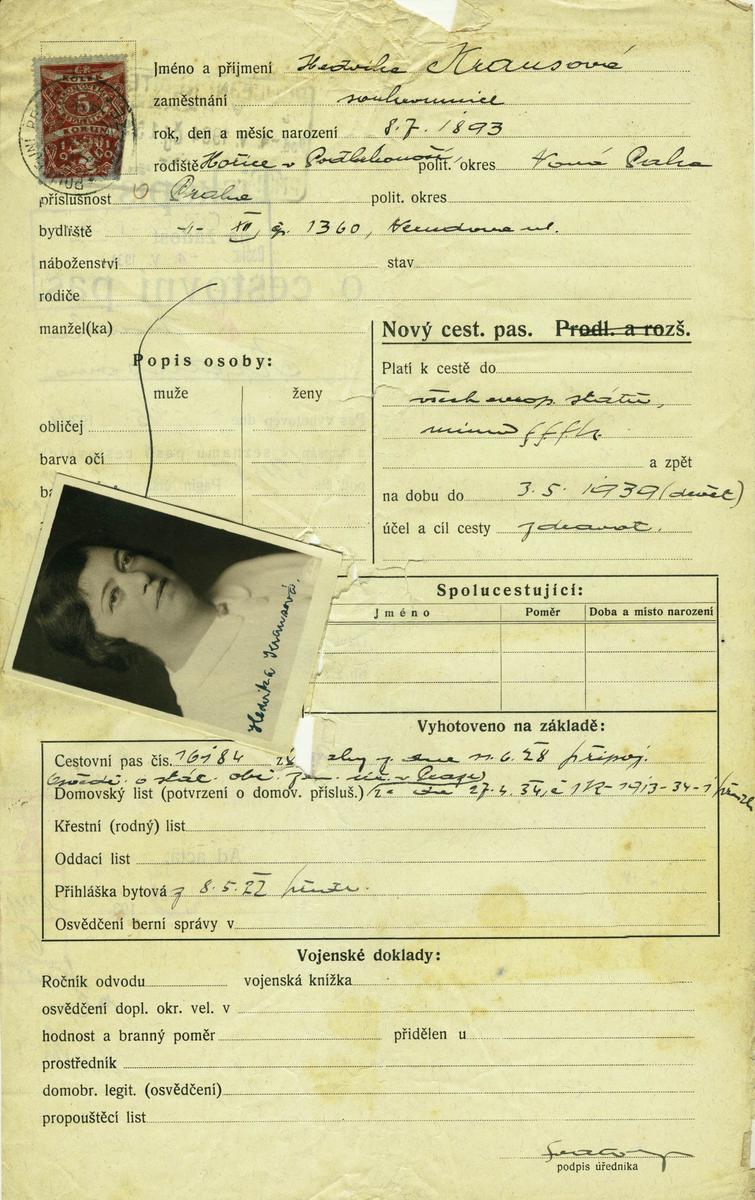 5
KORUN
Jméno a příjmení Hedvika Krausová
zaměstnání soukromnice
rok, den a měsíc narození 8.7.1893
rodiště Hořice v Podkrkonoší, polit. okres Nová Paka
příslušnost Praha polit. okres
bydliště -"- XII, čp. 1360, Nerudova ul.
náboženství stav
rodiče
manžel(ka)
Popis osoby:
muže ženy
obličej
barva očí
Nový cest. pas. Prodl. a rozš.
Platí k cestě do
všech evrop. států,
mimo
a zpět
na dobu do 3.5.1939
účel a cíl cesty zdravot.
Hedvika Krausová.
Spolucestující:
Jméno Poměr Doba a místo narození
Vyhotoveno na základě:
Cestovní pas čís. 16184 ze dne 11.6.28 připoj.
Domovský list (potvrzení o domov. přísluš.) ze dne 27.4.34, č
Křestní (rodný) list
Oddací list
Přihláška bytová z 8.5.22
Osvědčení berní správy v
Vojenské doklady:
Ročník odvodu vojenská knížka
osvědčení dopl. okr. vel. v
hodnost a branný poměr přidělen u
prostředník
domobr. legit. (osvědčení)
propouštěcí list
podpis úředníka